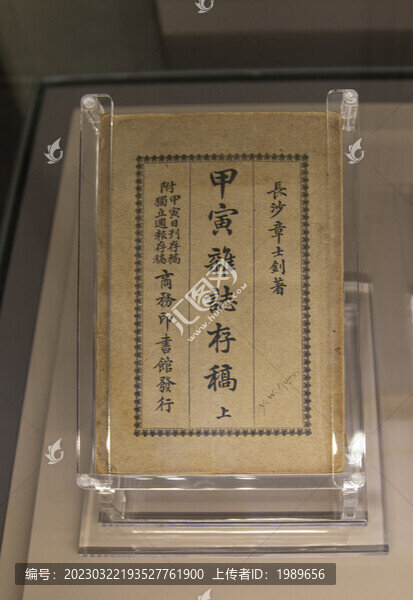 長沙章士釗著
甲寅雜誌存稿 上
附甲寅日刊存稿
獨立週報存稿
商務印書館發行
汇图网
www.huitu.com
编号:20230322193527761900 上传者ID:1989656